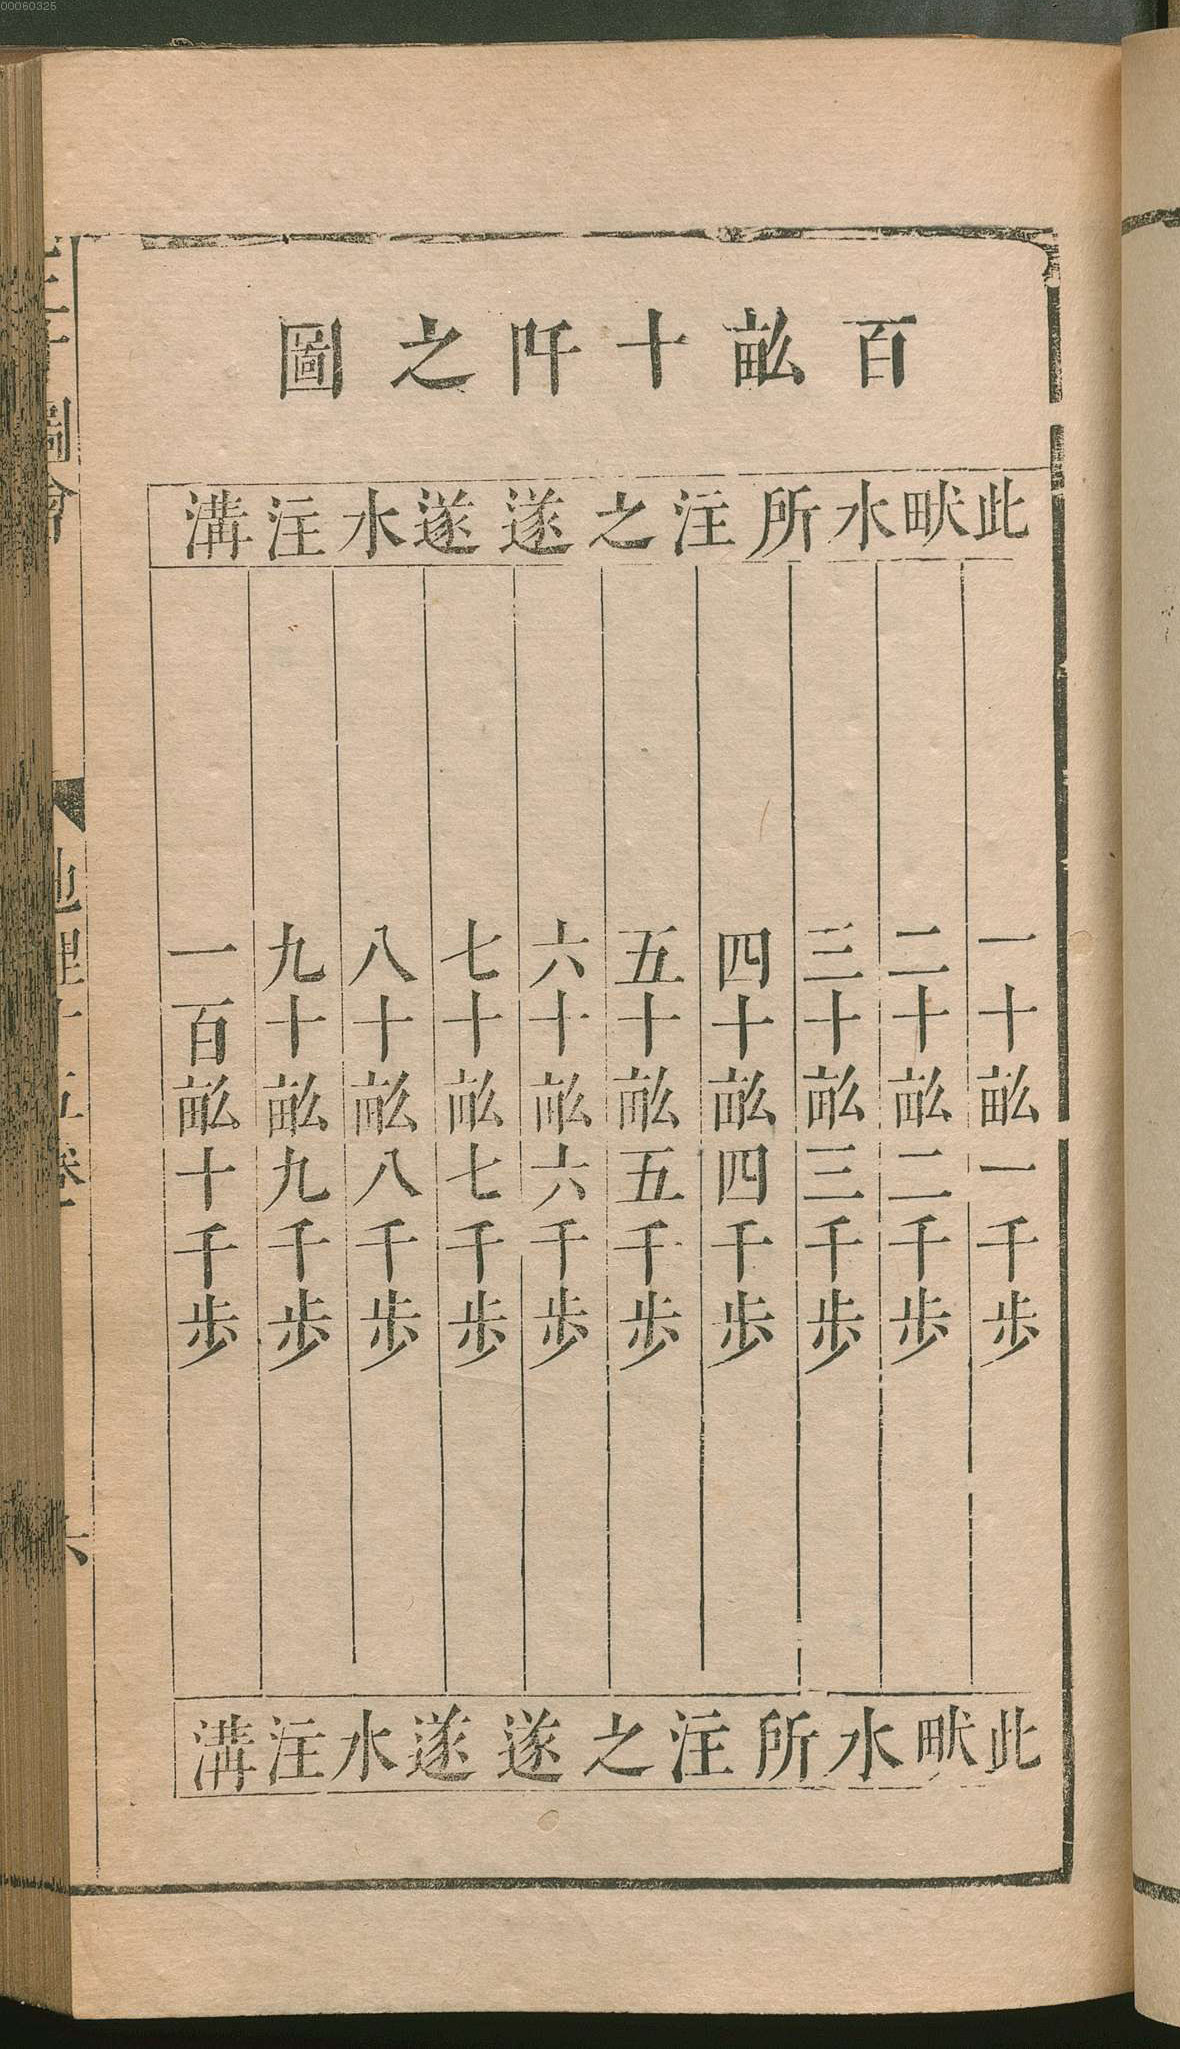 00060325
百畝十阡之圖
此畎水所注之遂遂水注溝
一十畝一千歩
二十畝二千歩
三十畝三千歩
四十畝四千歩
五十畝五千歩
六十畝六千歩
七十畝七千歩
八十畝八千歩
九十畝九千歩
一百畝十千歩
此畎水所注之遂遂水注溝
圖會
地理十五卷
六